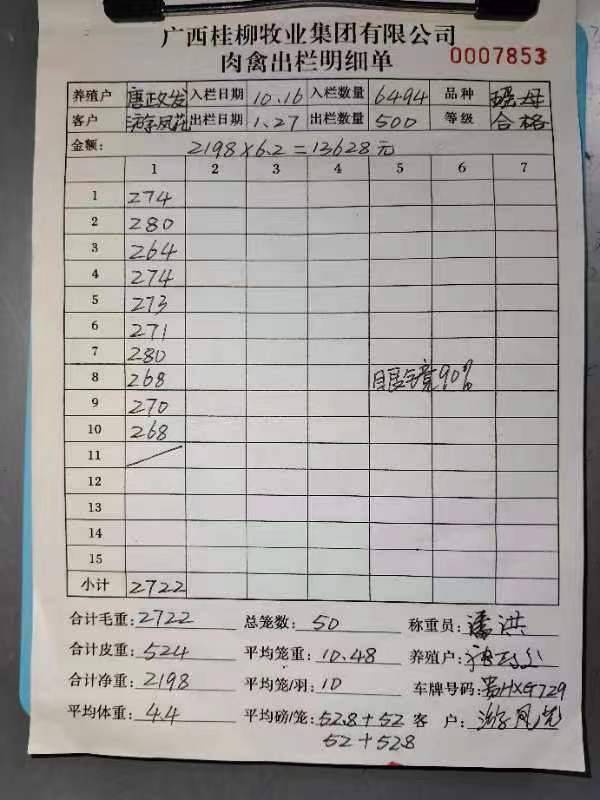 广西桂柳牧业集团有限公司
肉禽出栏明细单 0007853
养殖户 唐政发 入栏日期 10.16 入栏数量 6494 品种 瑶母
客户 游凤苑 出栏日期 1.27 出栏数量 500 等级 合格
金额: 2198×6.2=13628元
1 2 3 4 5 6 7
1 274
2 280
3 264
4 274
5 273
6 271
7 280
8 268 90%
9 270
10 268
11
12
13
14
15
小计 2722
合计毛重: 2722 总笼数: 50 称重员: 潘洪
合计皮重: 524 平均笼重: 10.48 养殖户:
合计净重: 2198 平均笼/羽: 10 车牌号码:
平均体重: 4.4 平均磅/笼: 52.8+52 客 户:
52+52.8